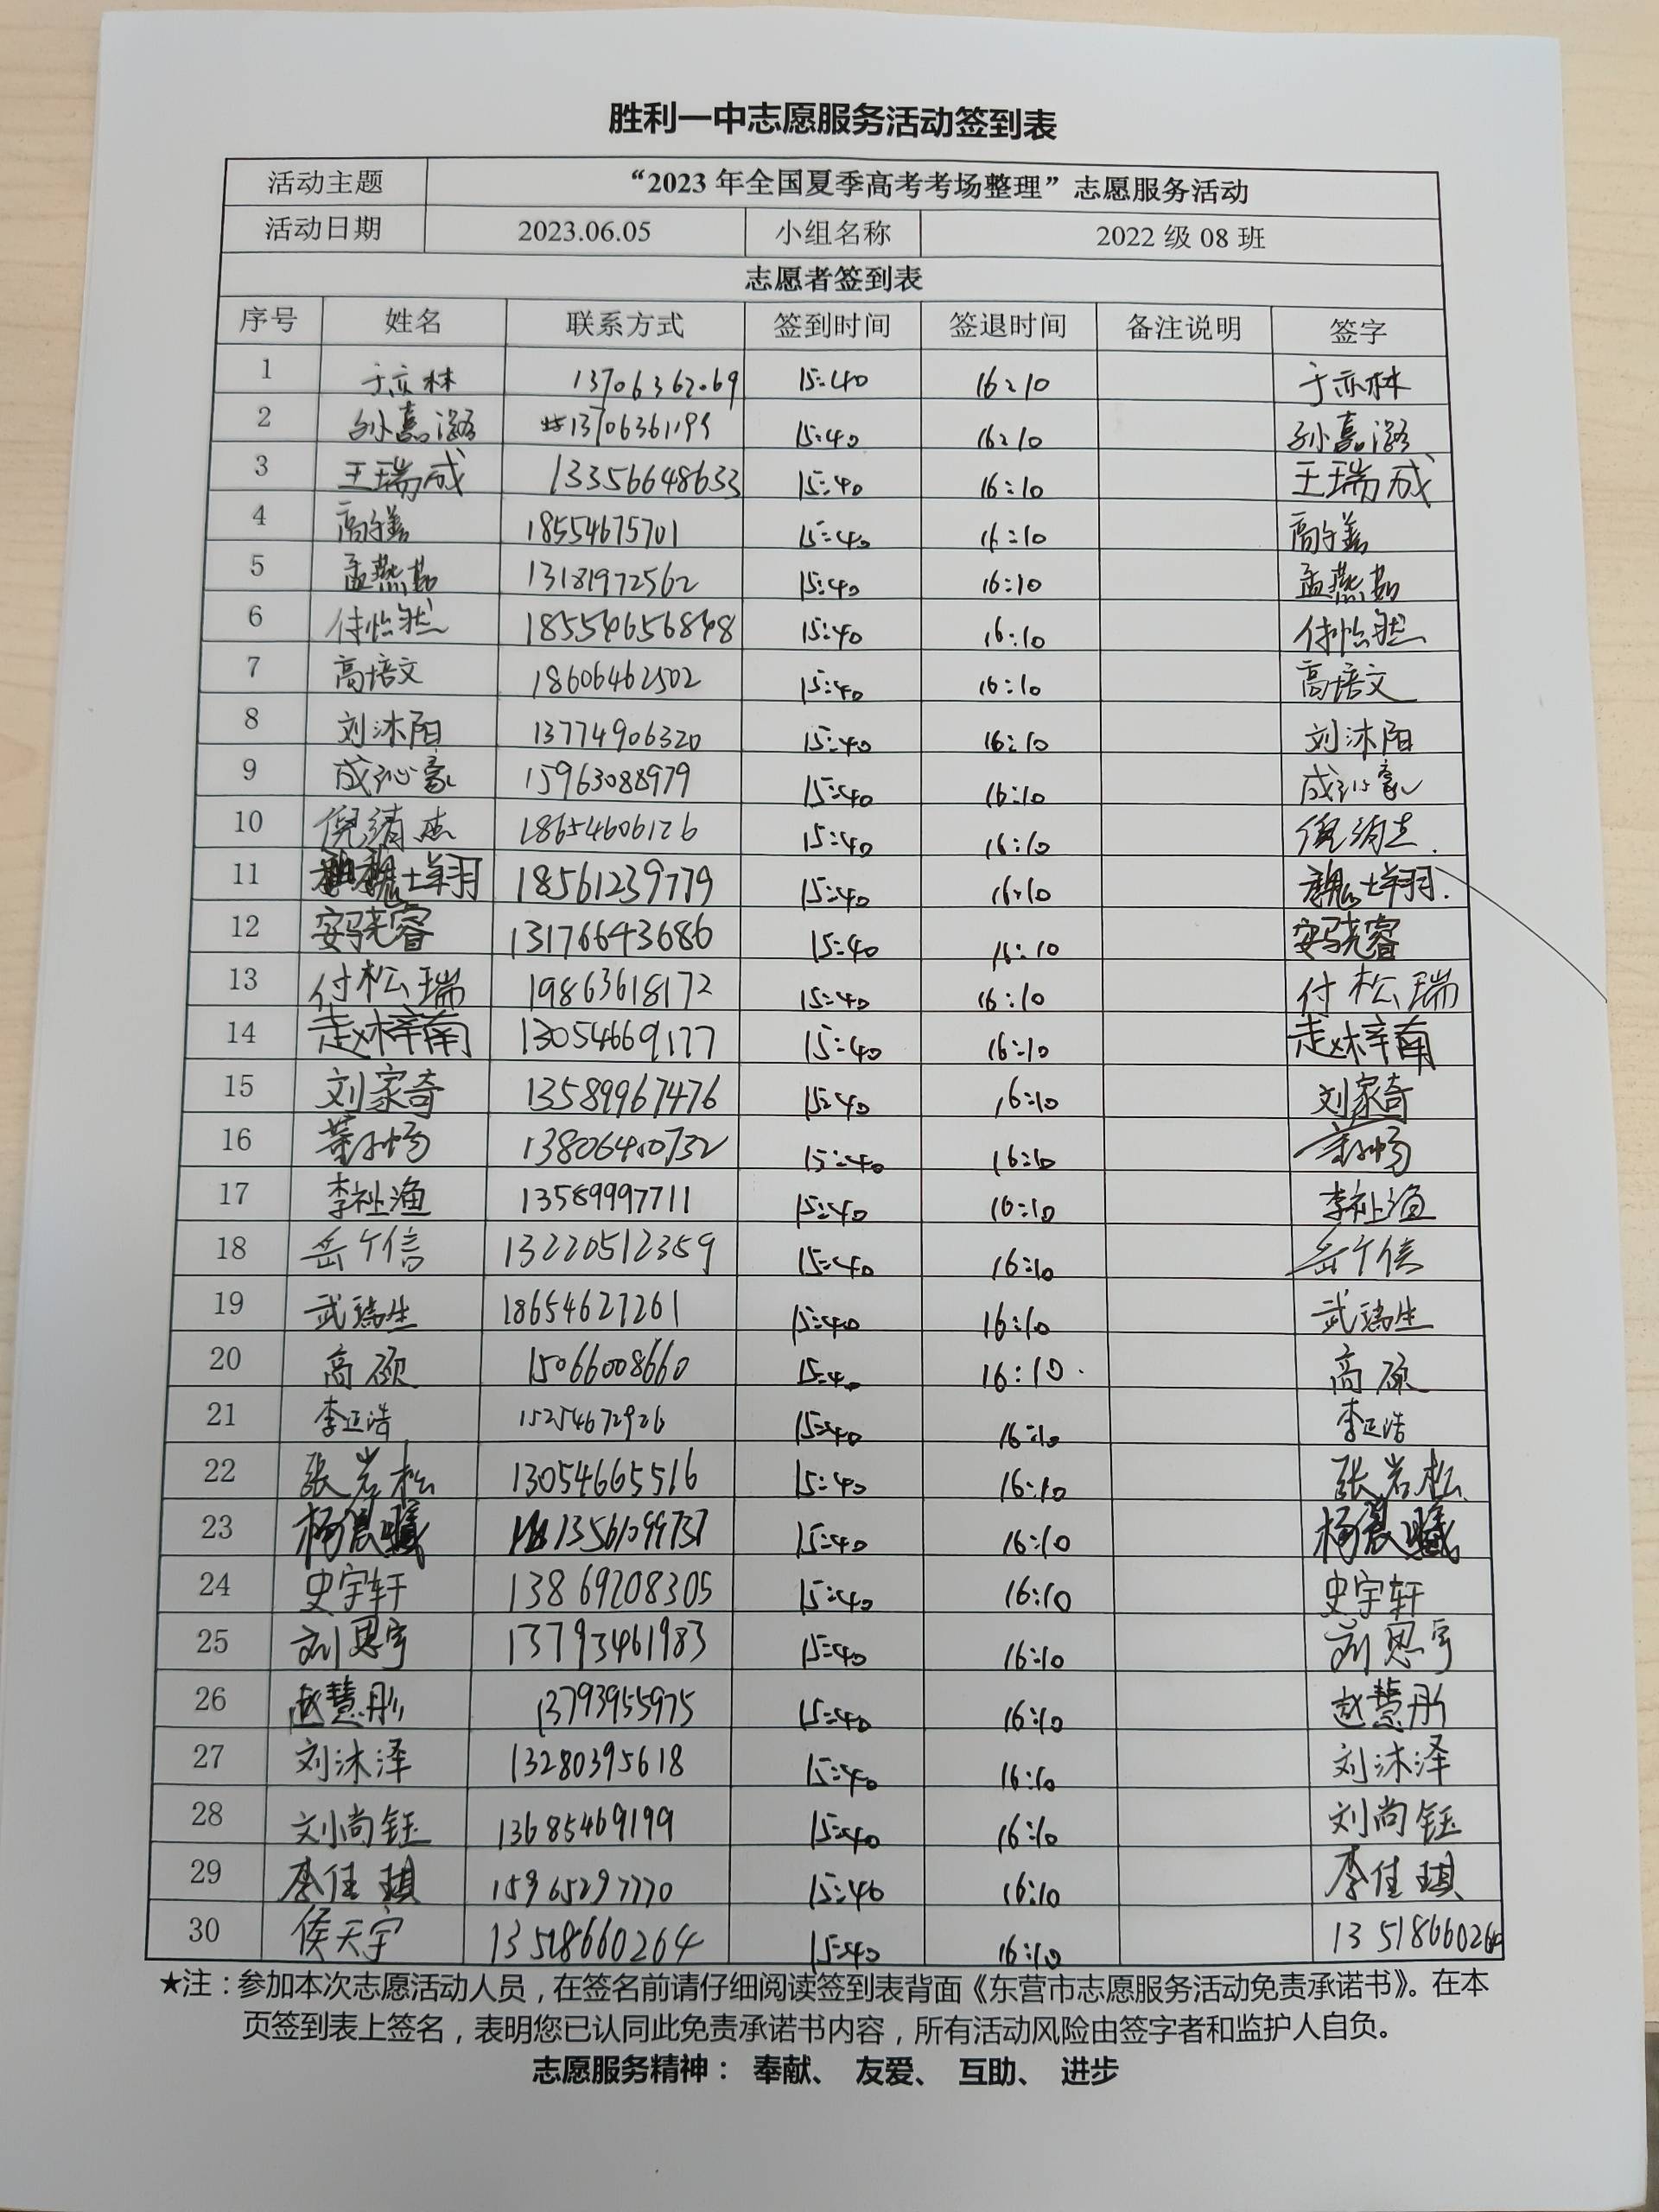 胜利一中志愿服务活动签到表
活动主题 “2023 年全国夏季高考考场整理”志愿服务活动
活动日期 2023.06.05 小组名称 2022 级 08 班
志愿者签到表
序号 姓名 联系方式 签到时间 签退时间 备注说明 签字
1 于亦林 13706362069 15:40 16:10 于亦林
2 孙嘉潞 13706361199 15:40 16:10 孙嘉潞
3 王瑞成 13356648633 15:40 16:10 王瑞成
4 18554675701 15:40 16:10
5 孟燕茹 13181972562 15:40 16:10 孟燕茹
6 付怡然 18554656848 15:40 16:10 付怡然
7 高培文 18606462502 15:40 16:10 高培文
8 刘沐阳 13774906320 15:40 16:10 刘沐阳
9 成沁豪 15963088979 15:40 16:10 成沁豪
10 18654606126 15:40 16:10
11 18561239779 15:40 16:10
12 安骁睿 13176643686 15:40 16:10 安骁睿
13 付松瑞 19863618172 15:40 16:10 付松瑞
14 赵梓南 13054669177 15:40 16:10 赵梓南
15 刘家奇 13589967476 15:40 16:10 刘家奇
16 15:40 16:10
17 李祉渔 13589997711 15:40 16:10 李祉渔
18 岳个信 13220512359 15:40 16:10 岳个信
19 武瑞生 18654627261 15:40 16:10 武瑞生
20 高硕 15066008660 15:40 16:10 高硕
21 李正浩 15254672926 15:40 16:10 李正浩
22 张岩松 13054665516 15:40 16:10 张岩松
23 杨晨曦 15:40 16:10 杨晨曦
24 史宇轩 13869208305 15:40 16:10 史宇轩
25 刘思宇 13793461983 15:40 16:10 刘思宇
26 赵慧彤 13793955975 15:40 16:10 赵慧彤
27 刘沐泽 13280395618 15:40 16:10 刘沐泽
28 刘尚钰 13685469199 15:40 16:10 刘尚钰
29 李佳琪 15965297770 15:40 16:10 李佳琪
30 侯天宇 13518660264 15:40 16:10 13518660264
★注：参加本次志愿活动人员，在签名前请仔细阅读签到表背面《东营市志愿服务活动免责承诺书》。在本
页签到表上签名，表明您已认同此免责承诺书内容，所有活动风险由签字者和监护人自负。
志愿服务精神： 奉献、 友爱、 互助、 进步